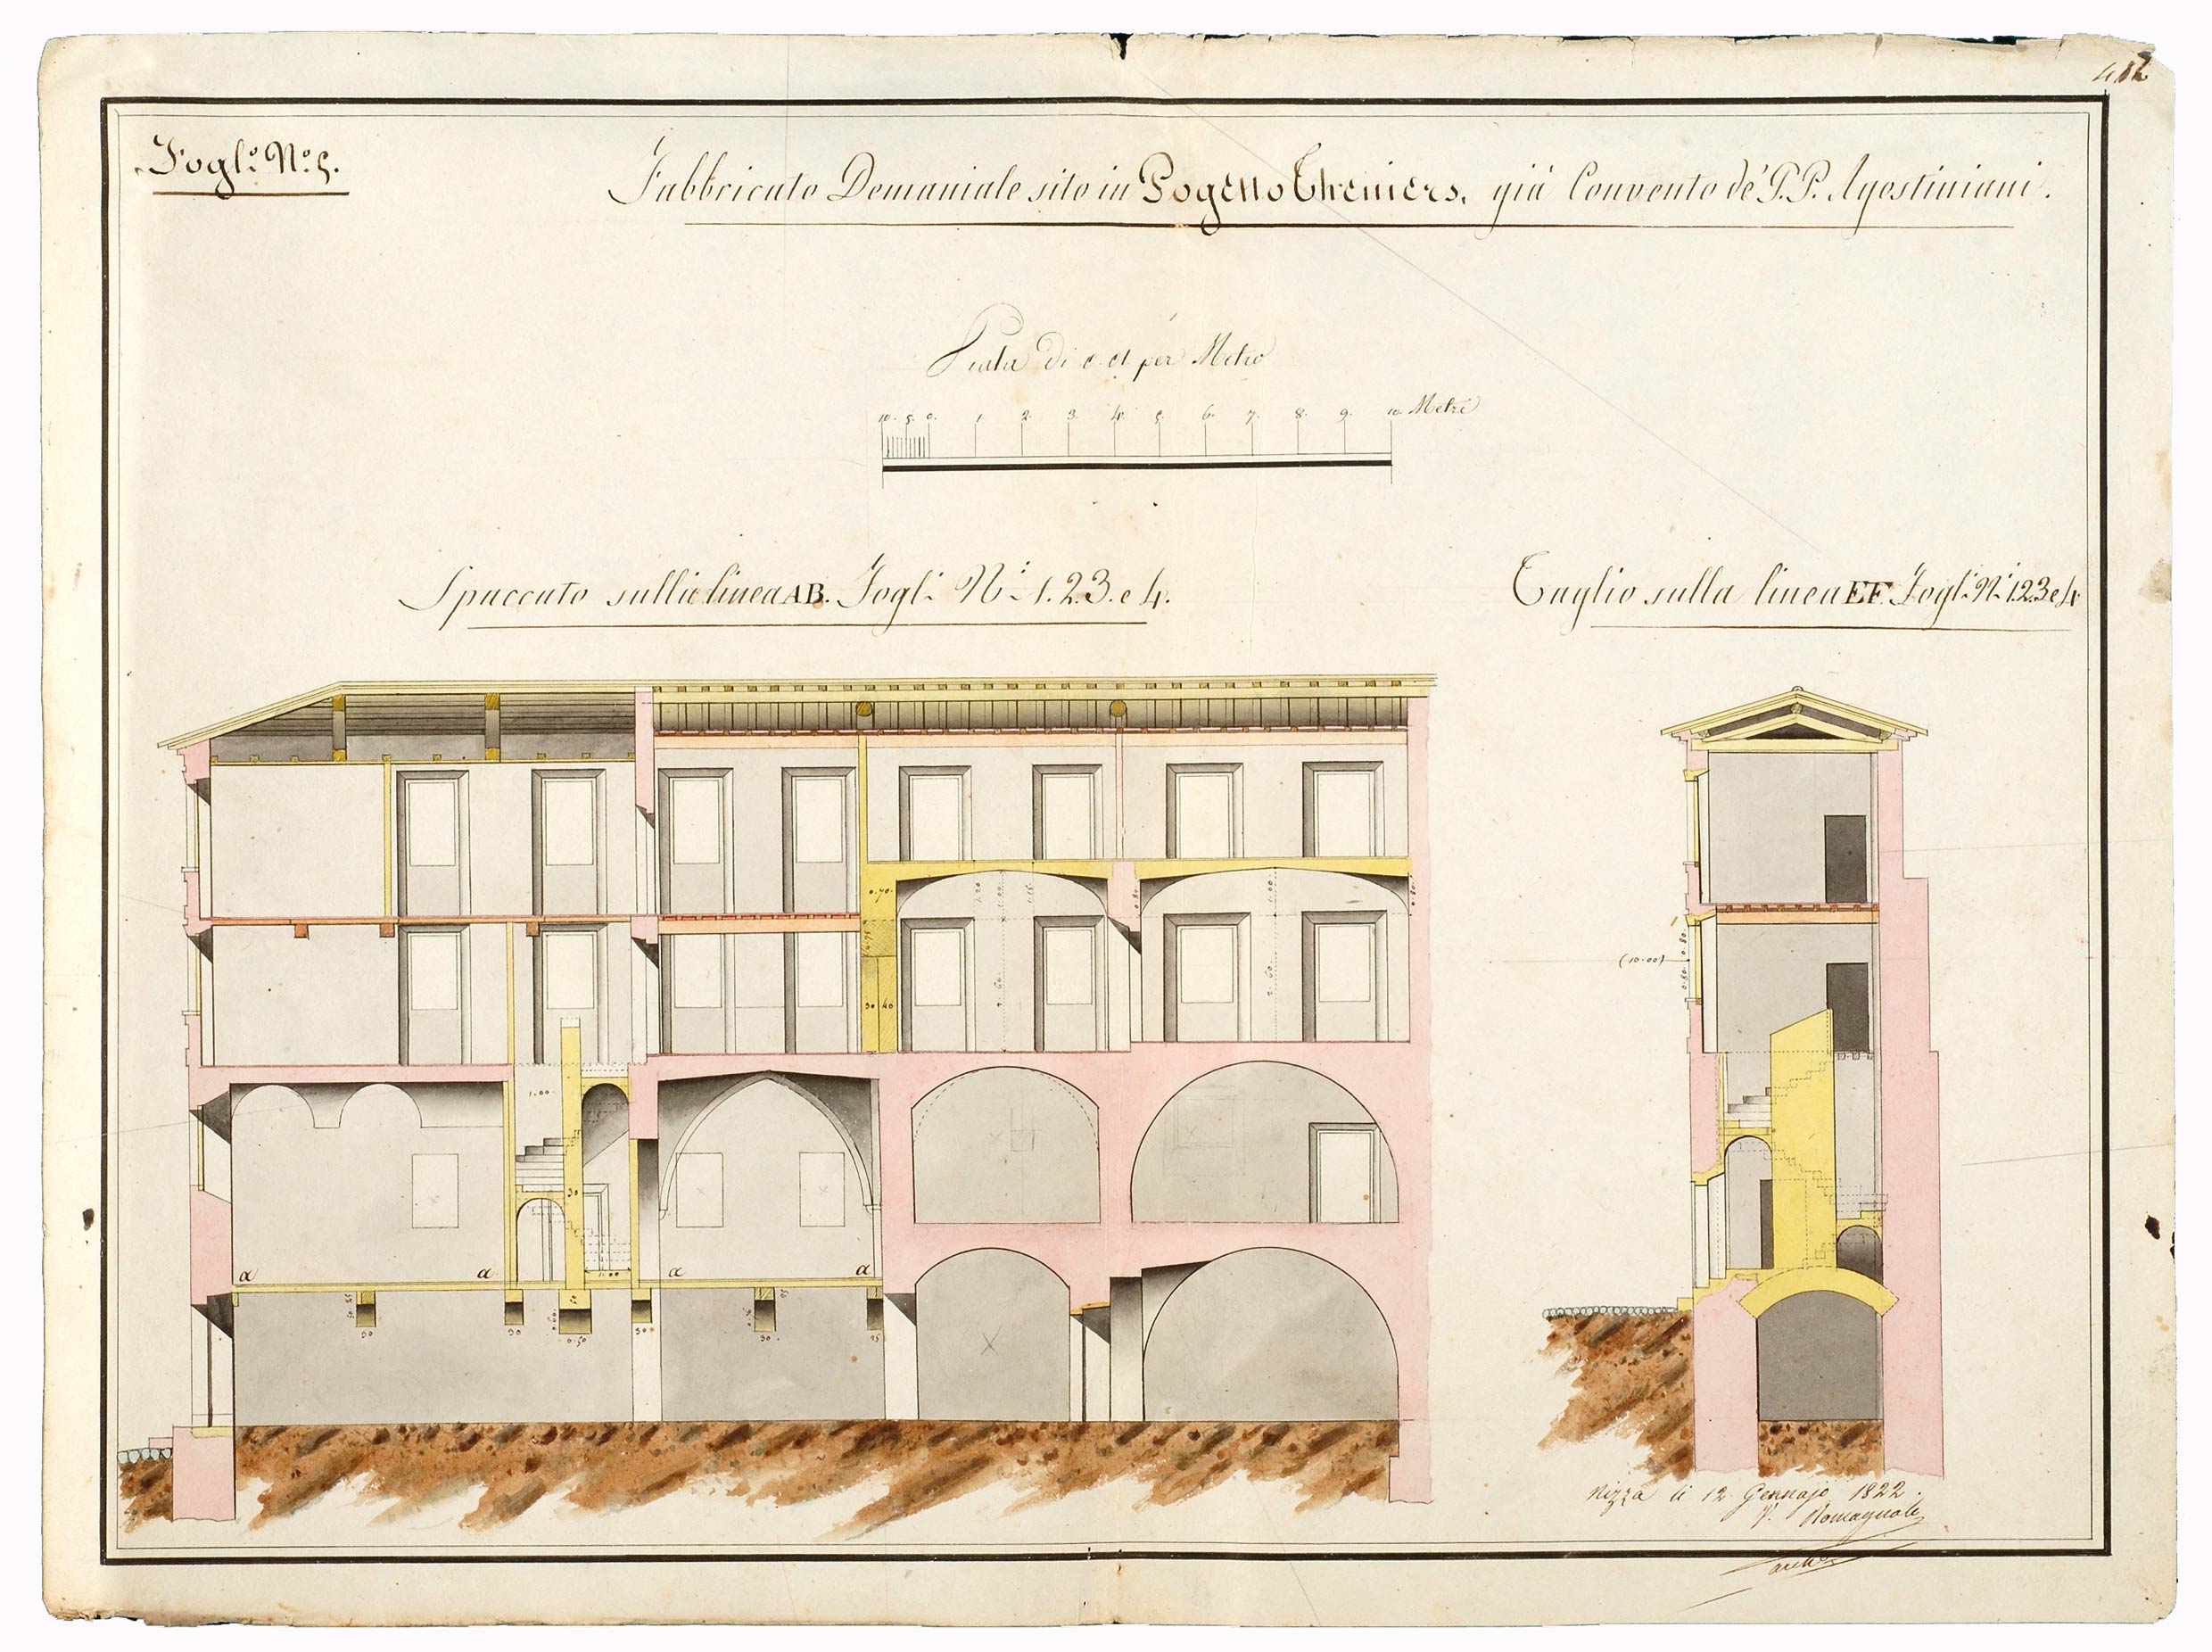 Fogl.º N.º 5.
Fabbricato Demaniale sito in Pogetto Theniers, già Convento de' P.P. Agostiniani.
Scala di per Metro
10. 5. 0. 1. 2. 3. 4. 5. 6. 7. 8. 9. 10. Metri
Spaccato sulla linea AB. Fogl.i N.i 1. 2. 3. e 4.
Taglio sulla linea EF. Fogl.i N.i 1. 2. 3 e 4
0.70.
30 40
2.60.
2.60.
(10.00)
0.80. 0.80.
1.00.
30
1.00
a a. a a
30 30 0.50 30 30. 25
Nizza li 12 Gennajo 1822.
Romagnole